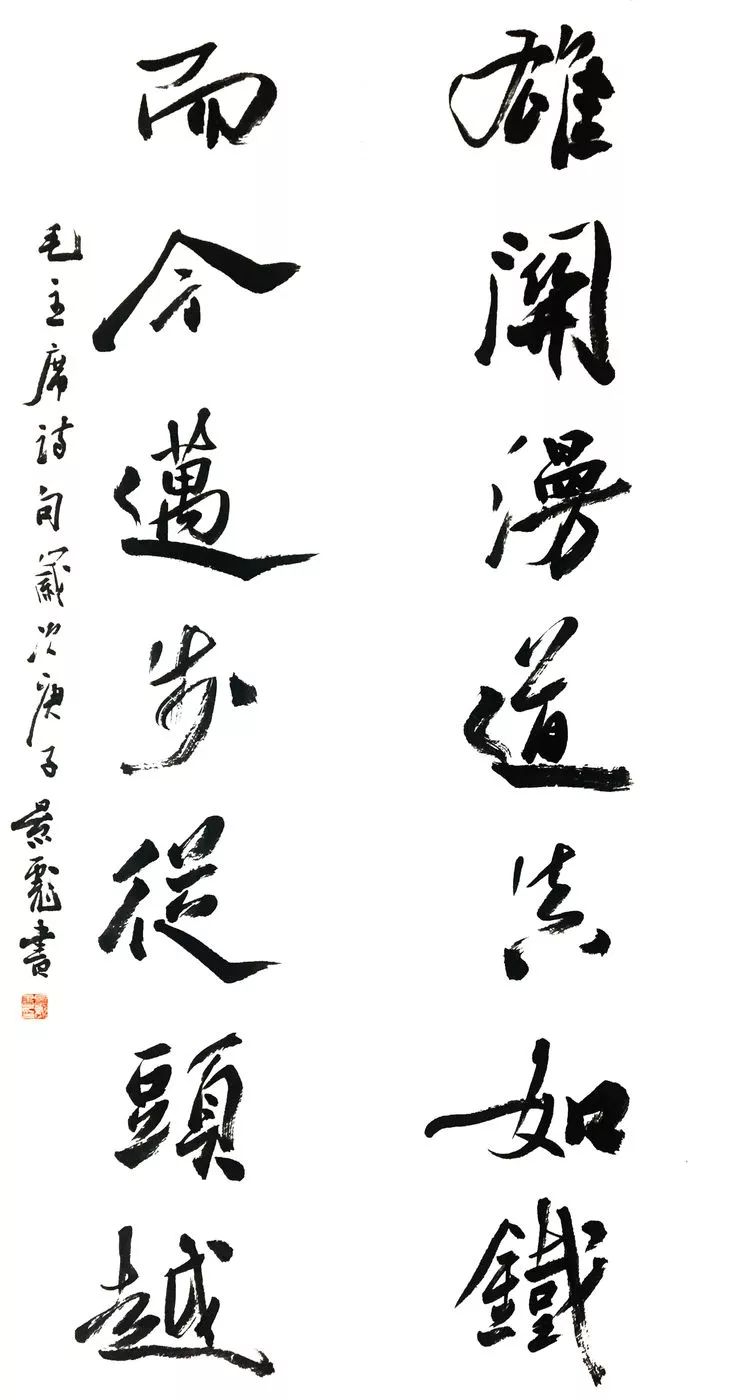 雄関漫道真如鐵
而今邁步從頭越
毛主席詩句歲次庚子景彪書